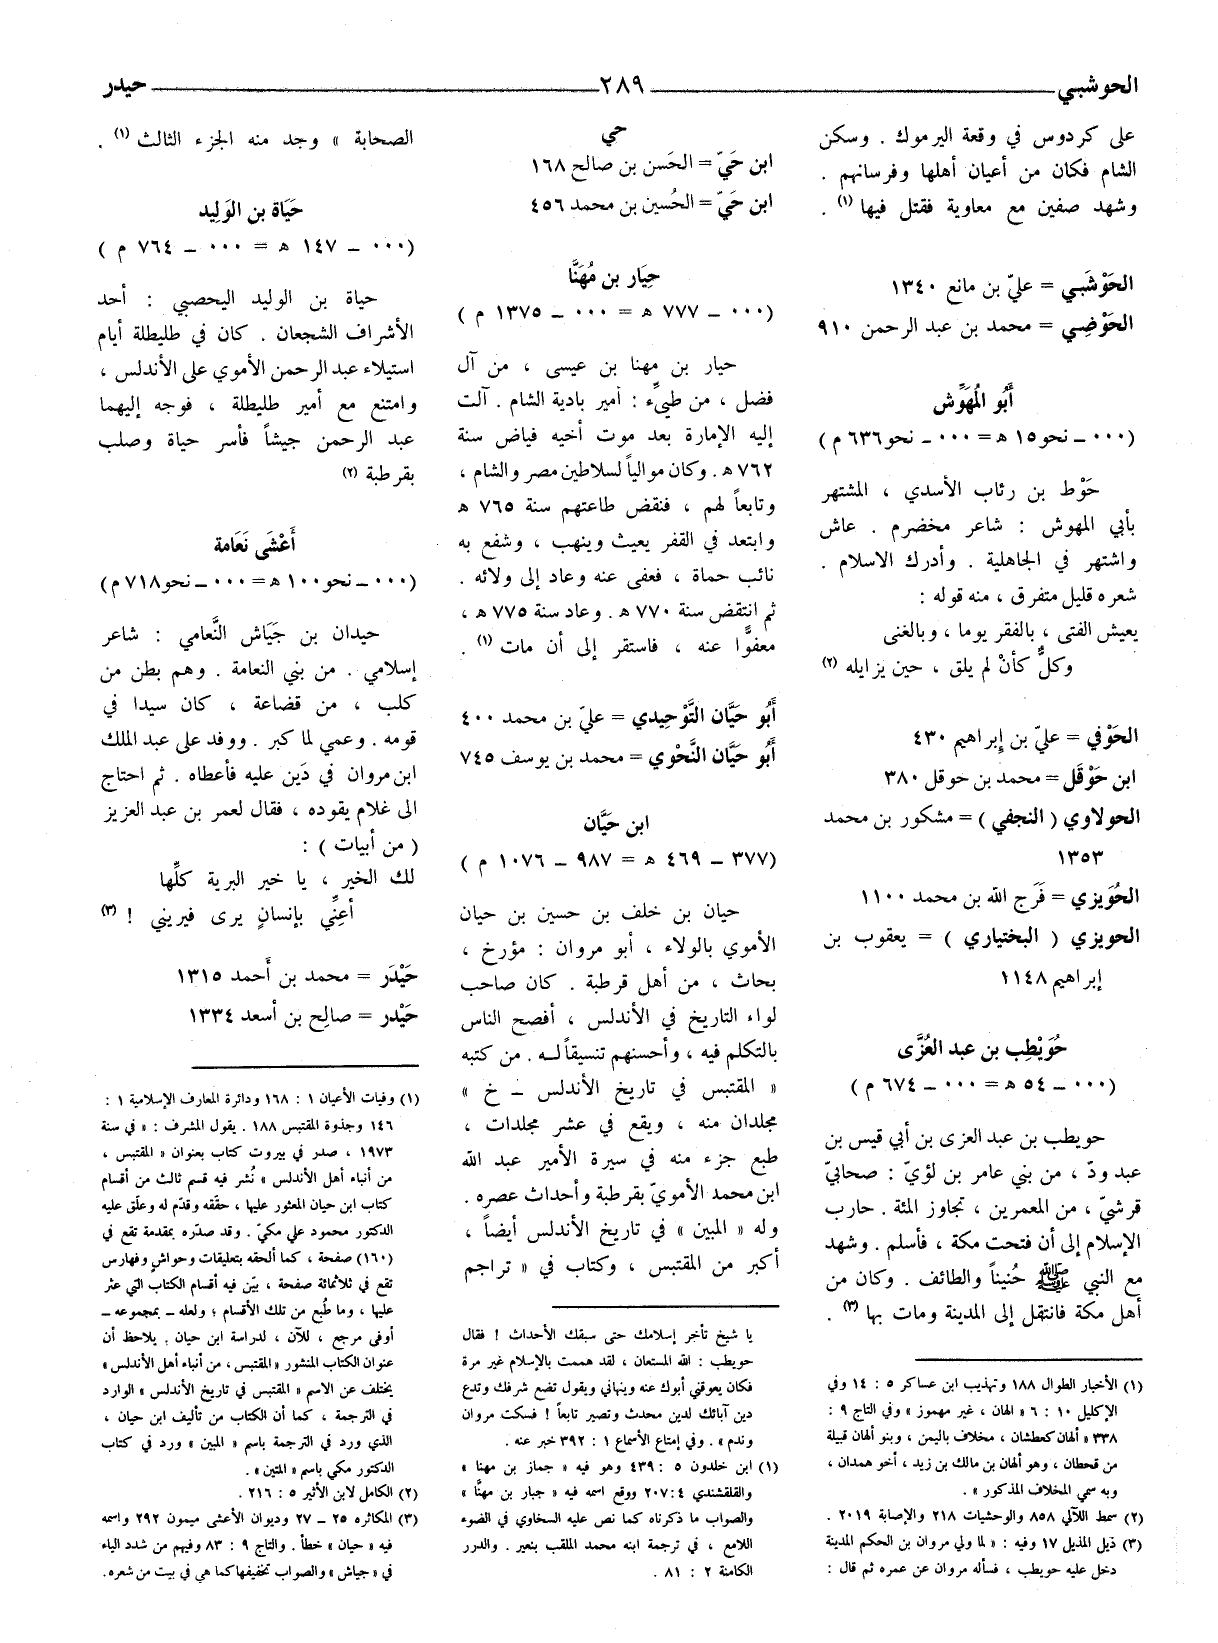 الحوشبي ٢٨٩ حيدر
على كردوس في وقعة اليرموك . وسكن
الشام فكان من أعيان أهلها وفرسانهم .
وشهد صفين مع معاوية فقتل فيها (١) .
الحَوْشَبي = عليّ بن مانع ١٣٤٠
الحَوْضِي = محمد بن عبد الرحمن ٩١٠
أَبُو المُهَوِّش
(٠٠٠ ــ نحو ١٥ هـ = ٠٠٠ ــ نحو ٦٣٦ م )
حَوْط بن رئاب الأسدي ، المشتهر
بأبي المهوش : شاعر مخضرم . عاش
واشتهر في الجاهلية . وأدرك الاسلام .
شعره قليل متفرق ، منه قوله :
يعيش الفتى ، بالفقر يوما ، وبالغنى
وكلٌّ كأنْ لم يلق ، حين يزايله (٢)
الحَوْفي = عليّ بن إبراهيم ٤٣٠
ابن حَوْقَل = محمد بن حوقل ٣٨٠
الحولاوي ( النجفي ) = مشكور بن محمد
١٣٥٣
الحُوَيزي = فَرَج الله بن محمد ١١٠٠
الحويزي ( البختياري ) = يعقوب بن
إبراهيم ١١٤٨
حُوَيْطِب بن عبد العُزَّى
(٠٠٠ ــ ٥٤ هـ = ٠٠٠ ــ ٦٧٤ م )
حويطب بن عبد العزى بن أبي قيس بن
عبد ودّ ، من بني عامر بن لؤيّ : صحابيّ
قرشيّ ، من المعمرين ، تجاوز المئة . حارب
الإسلام إلى أن فتحت مكة ، فأسلم . وشهد
مع النبي ﷺ حُنيناً والطائف . وكان من
أهل مكة فانتقل إلى المدينة ومات بها (٣) .
(١) الأخبار الطوال ١٨٨ وتهذيب ابن عساكر ٥ : ١٤ وفي
الإكليل ١٠ : ٦ « الهان ، غير مهموز » وفي التاج ٩ :
٣٣٨ « ألهان كعطشان ، مخلاف باليمن ، وبنو ألهان قبيلة
من قحطان ، وهو ألهان بن مالك بن زيد ، أخو همدان ،
وبه سمي المخلاف المذكور » .
(٢) سمط اللآلي ٨٥٨ والوحشيات ٢١٨ والإصابة ٢٠١٩ .
(٣) ذيل المذيل ١٧ وفيه : « لما ولي مروان بن الحكم المدينة
دخل عليه حويطب ، فسأله مروان عن عمره ثم قال :
حي
ابن حَيّ = الحَسن بن صالح ١٦٨
ابن حَيّ = الحُسين بن محمد ٤٥٦
حِيَار بن مُهَنَّا
(٠٠٠ ــ ٧٧٧ هـ = ٠٠٠ ــ ١٣٧٥ م )
حيار بن مهنا بن عيسى ، من آل
فضل ، من طيىءٍ : أمير بادية الشام . آلت
إليه الإمارة بعد موت أخيه فياض سنة
٧٦٢ هـ . وكان موالياً لسلاطين مصر والشام ،
وتابعاً لهم ، فنقض طاعتهم سنة ٧٦٥ هـ
وابتعد في القفر يعيث وينهب ، وشفع به
نائب حماة ، فعفى عنه وعاد إلى ولائه .
ثم انتقض سنة ٧٧٠ هـ . وعاد سنة ٧٧٥ هـ ،
معفوًّا عنه ، فاستقر إلى أن مات (١) .
أَبُو حَيَّان التَّوْحِيدي = عليّ بن محمد ٤٠٠
أَبُو حَيَّان النَّحْوي = محمد بن يوسف ٧٤٥
ابن حَيَّان
(٣٧٧ ــ ٤٦٩ هـ = ٩٨٧ ــ ١٠٧٦ م )
حيان بن خلف بن حسين بن حيان
الأموي بالولاء ، أبو مروان : مؤرخ ،
بحاث ، من أهل قرطبة . كان صاحب
لواء التاريخ في الأندلس ، أفصح الناس
بالتكلم فيه ، وأحسنهم تنسيقاً لـه . من كتبه
« المقتبس في تاريخ الأندلس ــ خ »
مجلدان منه ، ويقع في عشر مجلدات ،
طبع جزء منه في سيرة الأمير عبد الله
ابن محمد الأمويّ بقرطبة وأحداث عصره .
وله « المبين » في تاريخ الأندلس أيضاً ،
أكبر من المقتبس ، وكتاب في « تراجم
يا شيخ تأخر إسلامك حتى سبقك الأحداث ! فقال
حويطب : الله المستعان ، لقد هممت بالإسلام غير مرة
فكان يعوقني أبوك عنه وينهاني ويقول تضع شرفك وتدع
دين آبائك لدين محدث وتصير تابعاً ! فسكت مروان
وندم » . وفي إمتاع الأسماع ١ : ٣٩٢ خبر عنه .
(١) ابن خلدون ٥ : ٤٣٩ وهو فيه « جماز بن مهنا »
والقلقشندي ٤ : ٢٠٧ ووقع اسمه فيه « جبار بن مهنَّا »
والصواب ما ذكرناه كما نص عليه السخاوي في الضوء
اللامع ، في ترجمة ابنه محمد الملقب بنعير . والدرر
الكامنة ٢ : ٨١ .
الصحابة » وجد منه الجزء الثالث (١) .
حَيَاة بن الوَلِيد
(٠٠٠ ــ ١٤٧ هـ = ٠٠٠ ــ ٧٦٤ م )
حياة بن الوليد اليحصبي : أحد
الأشراف الشجعان . كان في طليطلة أيام
استيلاء عبد الرحمن الأموي على الأندلس ،
وامتنع مع أمير طليطلة ، فوجه إليهما
عبد الرحمن جيشاً فأسر حياة وصلب
بقرطبة (٢)
أَعْشَى نَعَامة
(٠٠٠ ــ نحو ١٠٠ هـ = ٠٠٠ ــ نحو ٧١٨ م )
حيدان بن جَيَاش النَّعامي : شاعر
إسلامي . من بني النعامة . وهم بطن من
كلب ، من قضاعة ، كان سيدا في
قومه . وعمي لما كبر . ووفد على عبد الملك
ابن مروان في دَين عليه فأعطاه . ثم احتاج
الى غلام يقوده ، فقال لعمر بن عبد العزيز
( من أبيات ) :
لك الخير ، يا خير البرية كلِّها
أعِنِّي بإنسانٍ يرى فيريني ! (٣)
حَيْدَر = محمد بن أَحمد ١٣١٥
حَيْدر = صالِح بن أسعد ١٣٣٤
(١) وفيات الأعيان ١ : ١٦٨ ودائرة المعارف الإسلامية ١ :
١٤٦ وجذوة المقتبس ١٨٨ . يقول المشرف : « في سنة
١٩٧٣ ، صدر في بيروت كتاب بعنوان « المقتبس ،
من أنباء أهل الأندلس » نُشر فيه قسم ثالث من أقسام
كتاب ابن حيان المعثور عليها ، حققه وقدّم له وعلّق عليه
الدكتور محمود علي مكيّ . وقد صدّره بمقدمة تقع في
(١٦٠) صفحة ، كما ألحقه بتعليقات وحواشٍ وفهارس
تقع في ثلاثمائة صفحة ، بيّن فيه أقسام الكتاب التي عثر
عليها ، وما طُبع من تلك الأقسام ؛ ولعله ــ بمجموعه ــ
أوفى مرجع ، للآن ، لدراسة ابن حيان . يلاحظ أن
عنوان الكتاب المنشور « المقتبس ، من أنباء أهل الأندلس »
يختلف عن الاسم « المقتبس في تاريخ الأندلس » الوارد
في الترجمة ، كما أن الكتاب من تأليف ابن حيان ،
الذي ورد في الترجمة باسم « المبين » ورد في كتاب
الدكتور مكي باسم « المتين » .
(٢) الكامل لابن الأثير ٥ : ٢١٦ .
(٣) المكاثره ٢٥ ــ ٢٧ وديوان الأعشى ميمون ٢٩٢ واسمه
فيه « حيان » خطأ . والتاج ٩ : ٨٣ وفيهم من شدد الياء
في « جياش » والصواب تخفيفها كما هي في بيت من شعره .